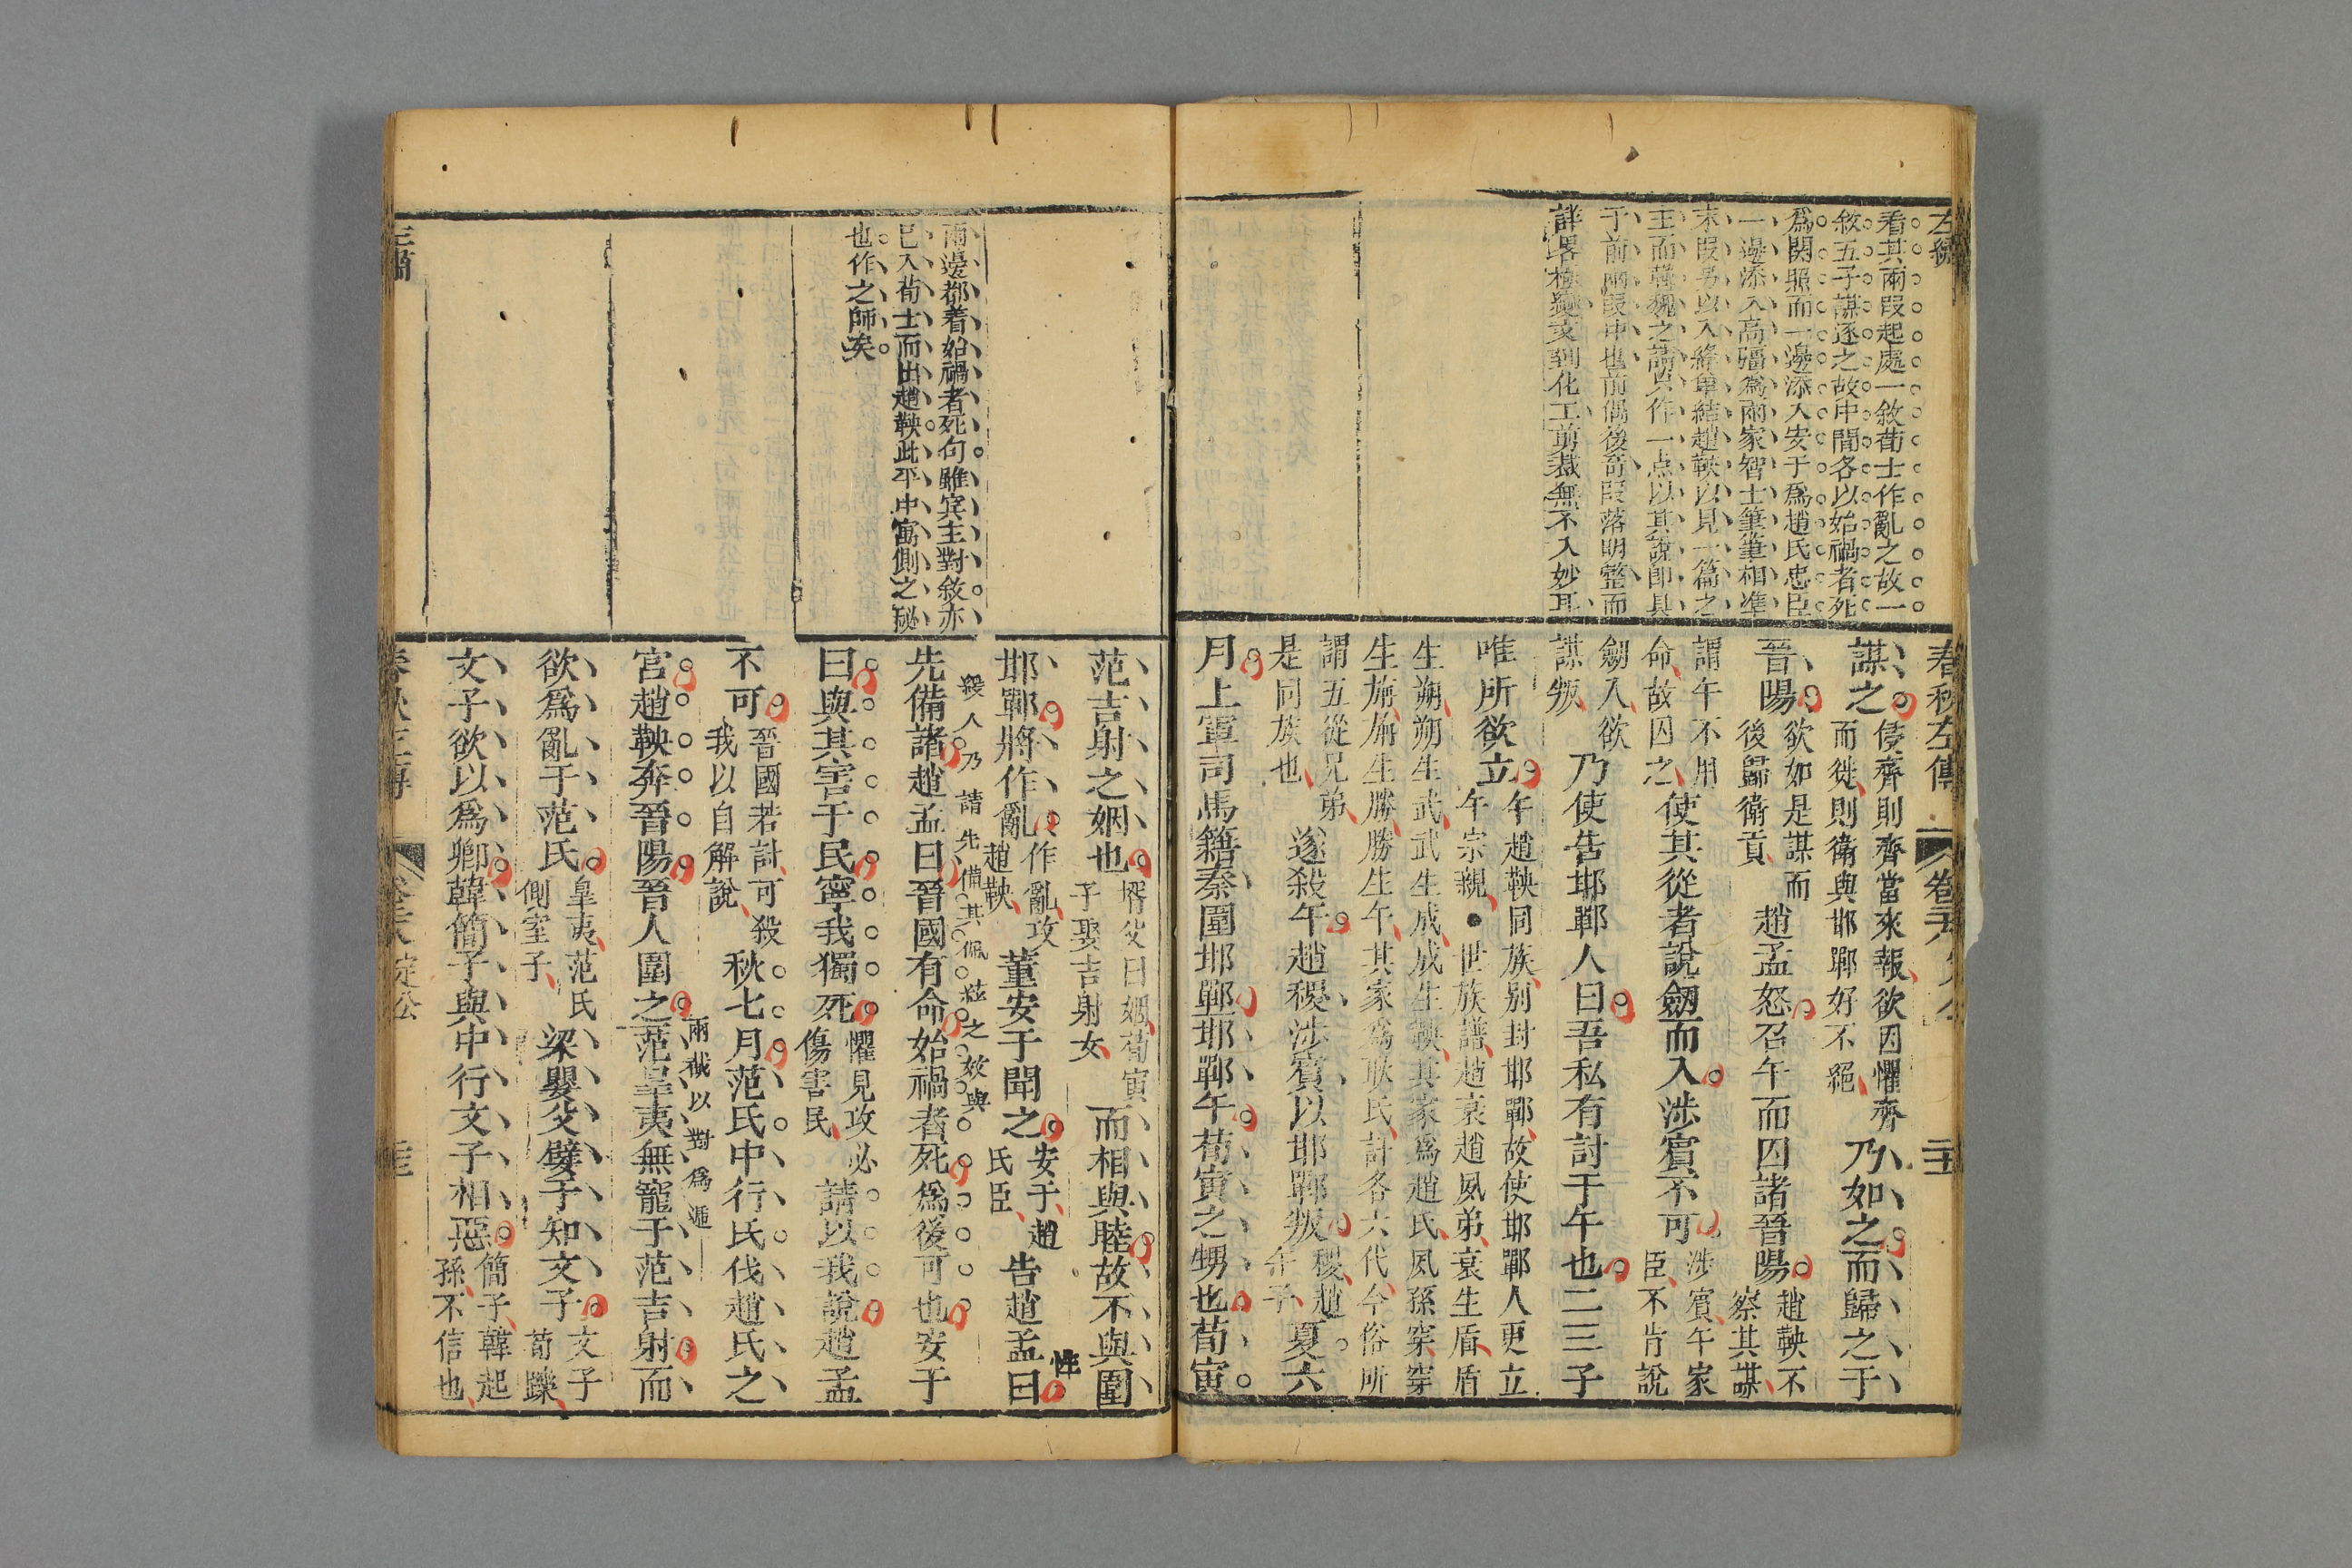 左繡
看其兩段起處一敘荀士作亂之故一
敘五子謀逐之故中間各以始禍者死
爲関照而一邊添入安于爲趙氏忠臣
一邊添入高彊爲兩家智士筆筆相準
末段另以入絳單結趙鞅以見一篇之
主而韓魏之請只作一点以其說卽具
于前兩段中也前偶後奇段落明整而
詳畧極變叓到化工剪裁無不入妙耳
春秋左傳 卷二十八 定公
謀之侵齊則齊當來報欲因懼齊
而徙則衛與邯鄲好不絕乃如之而歸之于
晉陽欲如是謀而
後歸衛貢趙孟怒召午而囚諸晉陽趙鞅不
察其謀
謂午不用
命故囚之使其從者說劒而入涉賓不可涉賓午家
臣不肯說
劒入欲
謀叛乃使告邯鄲人曰吾私有討于午也二三子
唯所欲立午趙鞅同族別封邯鄲故使邯鄲人更立
午宗親●世族譜趙衰趙夙弟衰生盾盾
生朔朔生武武生成成生鞅其家爲趙氏夙孫穿穿
生旃旃生勝勝生午其家爲耿氏計各六代今俗所
謂五從兄弟
是同族也遂殺午趙稷涉賓以邯鄲叛稷趙
午子夏六
月上軍司馬籍秦圍邯鄲邯鄲午荀寅之甥也荀寅
兩邊都着始禍者死句雖宾主對敘亦
已入荀士而出趙鞅此平中寓側之秘
也作之師矣
范吉射之姻也壻父曰姻荀寅
子娶吉射女而相與睦故不與圍
邯鄲將作亂作亂攻
趙鞅董安于聞之安于趙
氏臣告趙孟曰
性
緩人乃請先備其佩茲之效與
先備諸趙孟曰晉國有命始禍者死爲後可也安于
曰與其害于民寧我獨死懼見攻必
傷害民請以我說趙孟
不可晉國若討可殺
我以自解說秋七月范氏中行氏伐趙氏之
兩截以對爲遞
宮趙鞅奔晉陽晉人圍之范臯夷無寵于范吉射而
欲爲亂于范氏臯夷范氏
側室子梁嬰父嬖于知文子文子
荀躒
文子欲以爲卿韓簡子與中行文子相惡簡子韓起
孫不信也